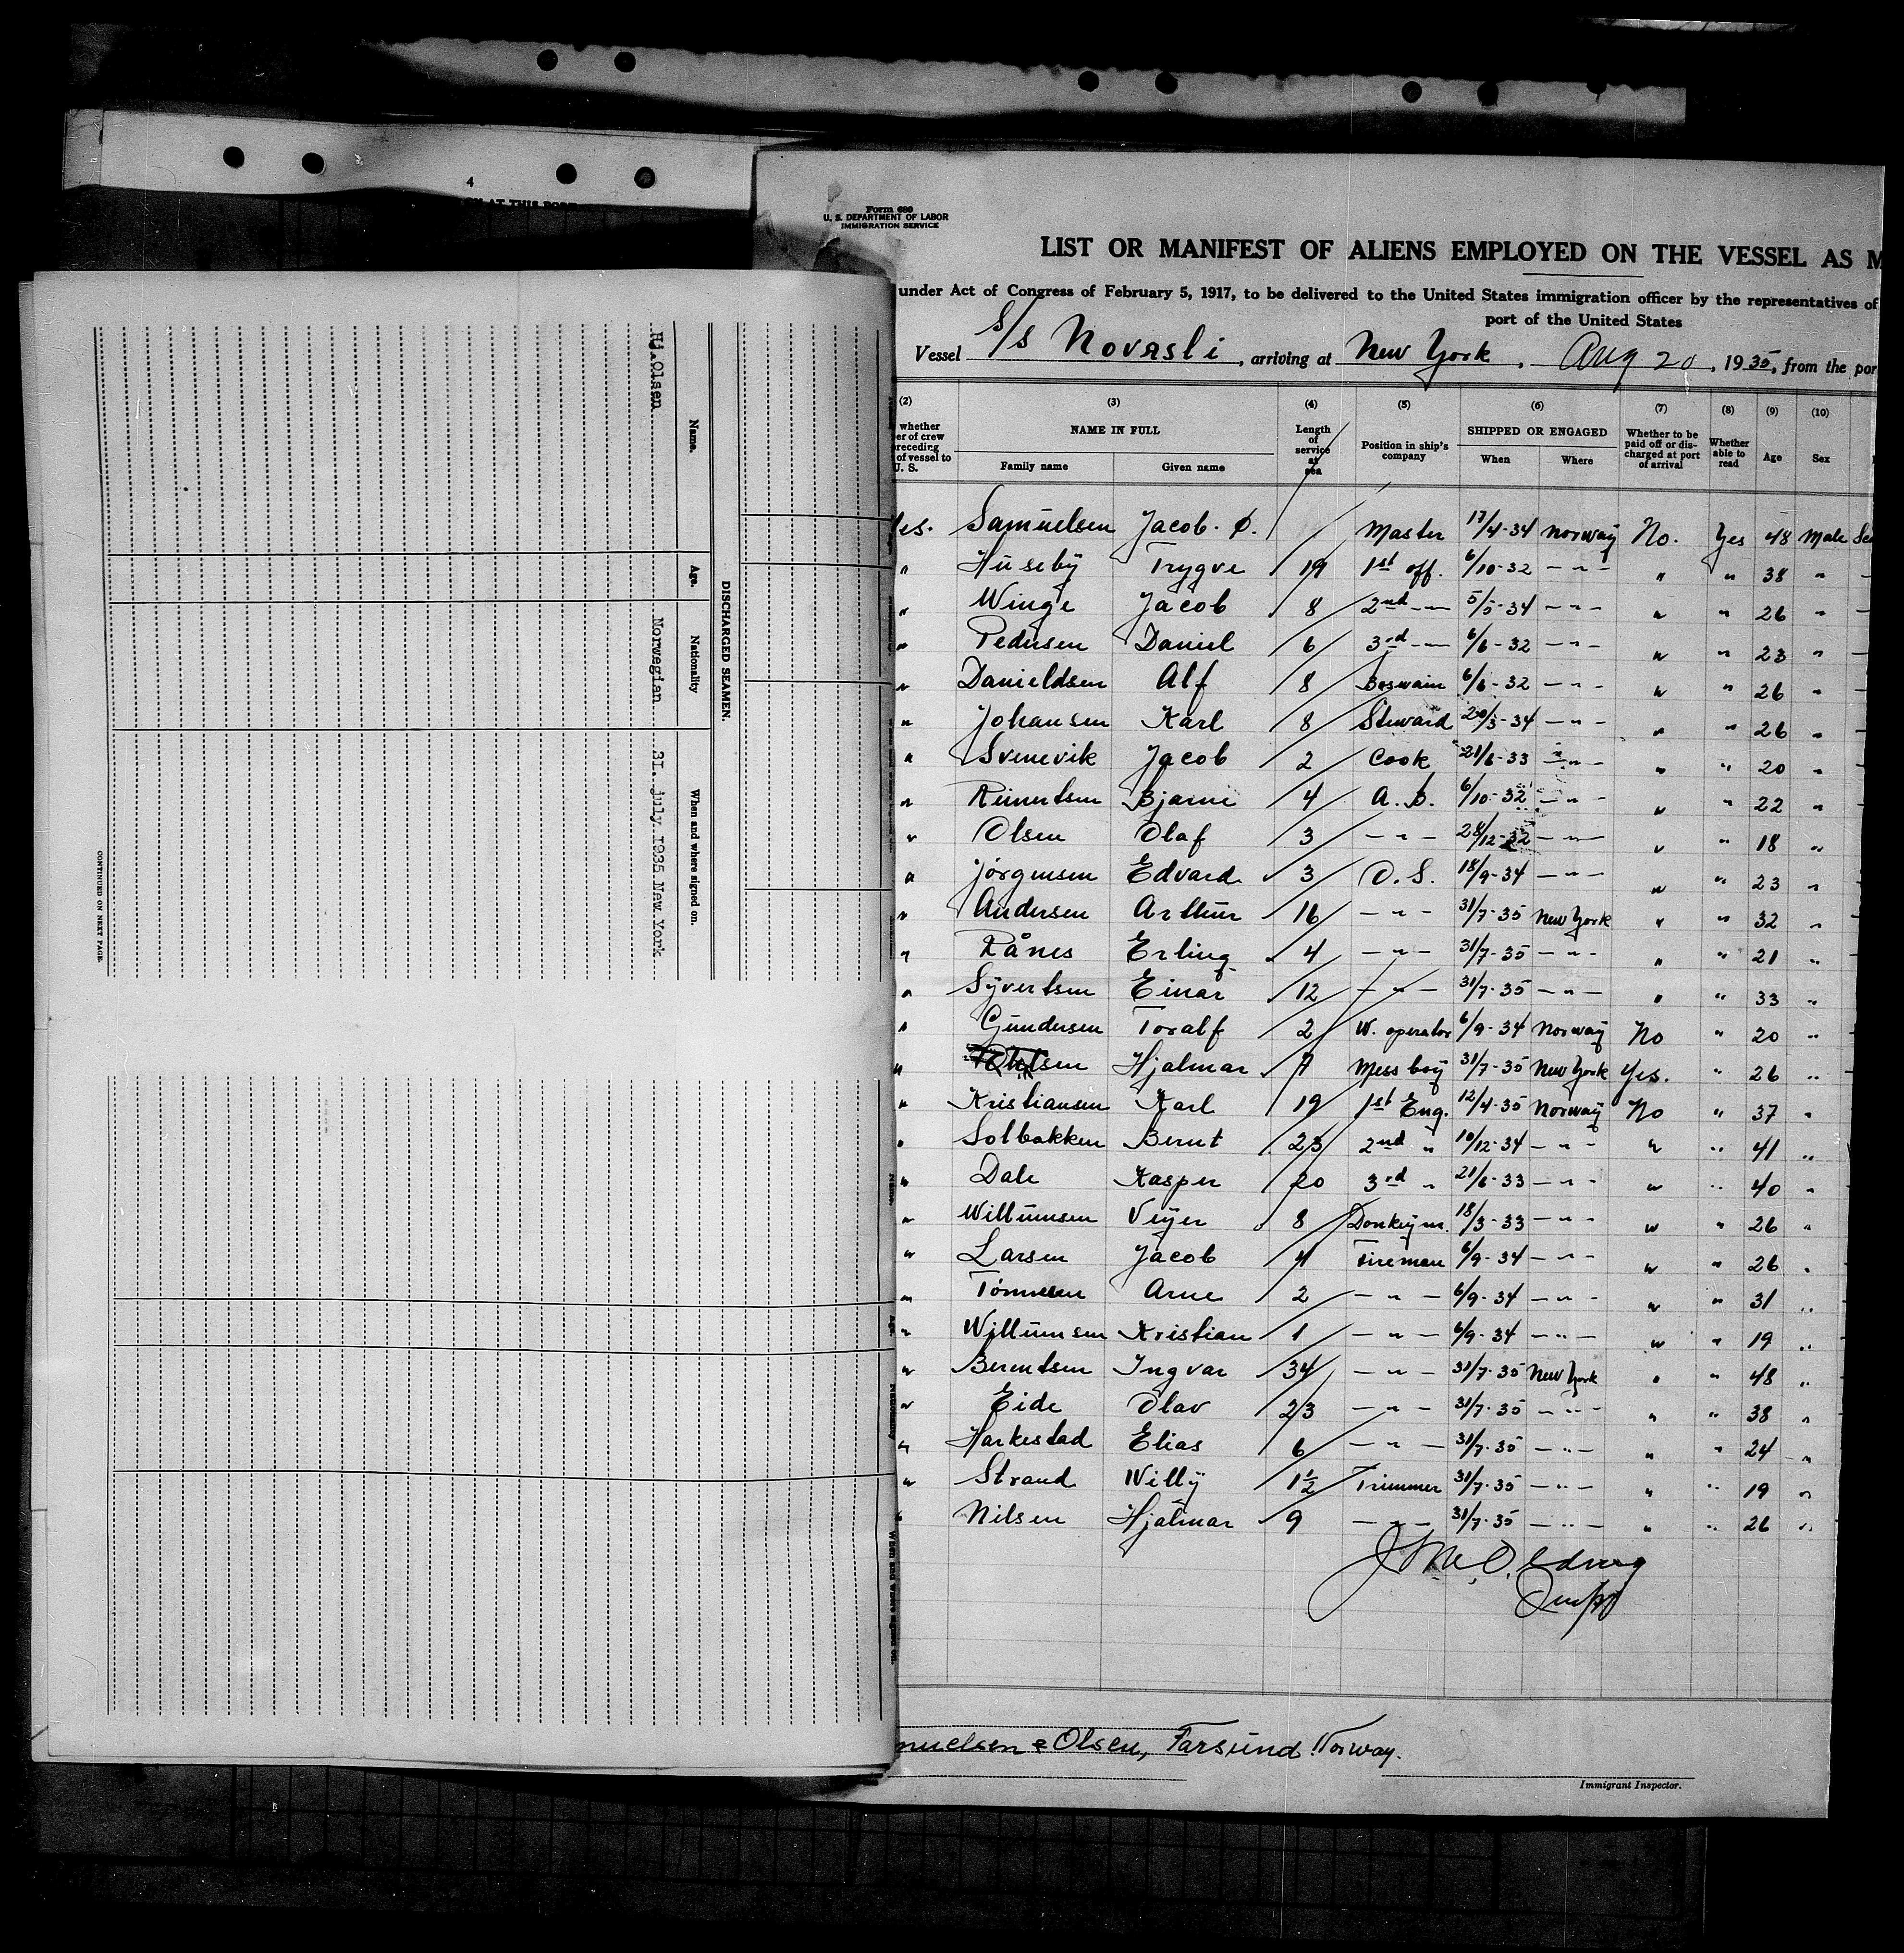 4
Form 680
U. S. DEPARTMENT OF LABOR
IMMIGRATION SERVICE
LIST OR MANIFEST OF ALIENS EMPLOYED ON THE VESSEL AS M
under Act of Congress of February 5, 1917, to be delivered to the United States immigration officer by the representatives of
port of the United States
Vessel S/S Novasli, arriving at New York, Aug 20, 1935, from the por
(2) (3) (4) (5) (6) (7) (8) (9) (10)
whether er of crew preceding of vessel to U. S. NAME IN FULL Family name Given name Length of service at sea Position in ship's company SHIPPED OR ENGAGED When Where Whether to be paid off or discharged at port of arrival Whether able to read Age Sex
es. Samuelsen Jacob. Ø. Master 17/4-34 Norway No. Yes 48 Male
" Huseby Trygve 19 1st off. 6/10-32 -"- " " 38 "
" Winge Jacob 8 2nd -"- 5/5-34 -"- " " 26 "
" Pedersen Daniel 6 3rd -"- 6/6-32 -"- " " 23 "
" Danieldsen Alf 8 Boswain 6/6-32 -"- " " 26 "
" Johansen Karl 8 Steward 20/3-34 -"- " " 26 "
" Svenevik Jacob 2 Cook 21/6-33 -"- " " 20 "
" Reinertsen Bjarne 4 A. B. 6/10-32 -"- " " 22 "
" Olsen Olaf 3 -"- 28/12-32 -"- " " 18 "
" Jørgensen Edvard 3 O. S. 18/9-34 -"- " " 23 "
" Andersen Arthur 16 -"- 31/7-35 New York " " 32 "
" Rånes Erling 4 -"- 31/7-35 -"- " " 21 "
" Syvertsen Einar 12 -"- 31/7-35 -"- " " 33 "
" Gundersen Toralf 2 W. operator 6/9-34 Norway No " 20 "
" Hjalmar 7 Mess boy 31/7-35 New York Yes. " 26 "
" Kristiansen Karl 19 1st Eng. 12/4-35 Norway No " 37 "
" Solbakken Bernt 23 2nd " 10/12-34 -"- " " 41 "
" Dale Kasper 20 3rd " 21/6-33 -"- " " 40 "
" Willumsen Veyer 8 Donkeym. 18/3-33 -"- " " 26 "
" Larsen Jacob 4 Fireman 6/9-34 -"- " " 26 "
" Tønnesen Arne 2 -"- 6/9-34 -"- " " 31 "
" Willumsen Kristian 1 -"- 6/9-34 -"- " " 19 "
" Berentsen Ingvar 34 -"- 31/7-35 New York " " 48 "
" Eide Olav 23 -"- 31/7-35 -"- " " 38 "
" Harkestad Elias 6 -"- 31/7-35 -"- " " 24 "
" Strand Willy 1 1/2 Trimmer 31/7-35 -"- " " 19 "
" Nilsen Hjalmar 9 -"- 31/7-35 -"- " " 26 "
muelsen & Olsen, Farsund Norway.
Immigrant Inspector.
DISCHARGED SEAMEN.
Name. Age. Nationality When and where signed on.
Hj.Olsen Norwegian 31. july. 1935 New York
CONTINUED ON NEXT PAGE.